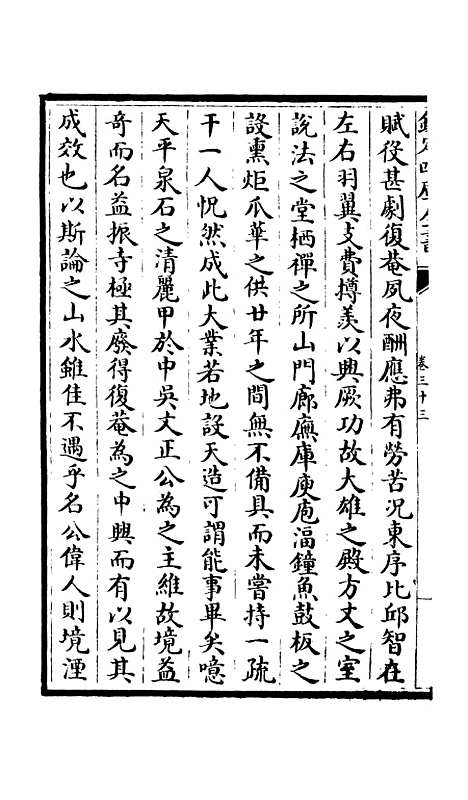 欽定四庫全書
卷三十三
賦役甚劇復菴夙夜酬應弗有勞苦况東序比邱智在
左右羽翼支費撙羨以興厥功故大雄之殿方丈之室
說法之堂栖禪之所山門廊廡庫庾庖湢鐘魚鼓板之
設熏炬瓜華之供廿年之間無不備具而未嘗持一疏
干一人怳然成此大業若地設天造可謂能事畢矣噫
天平泉石之清麗甲於中吳文正公為之主維故境益
奇而名益振寺極其廢得復菴為之中興而有以見其
成效也以斯論之山水雖佳不遇乎名公偉人則境湮